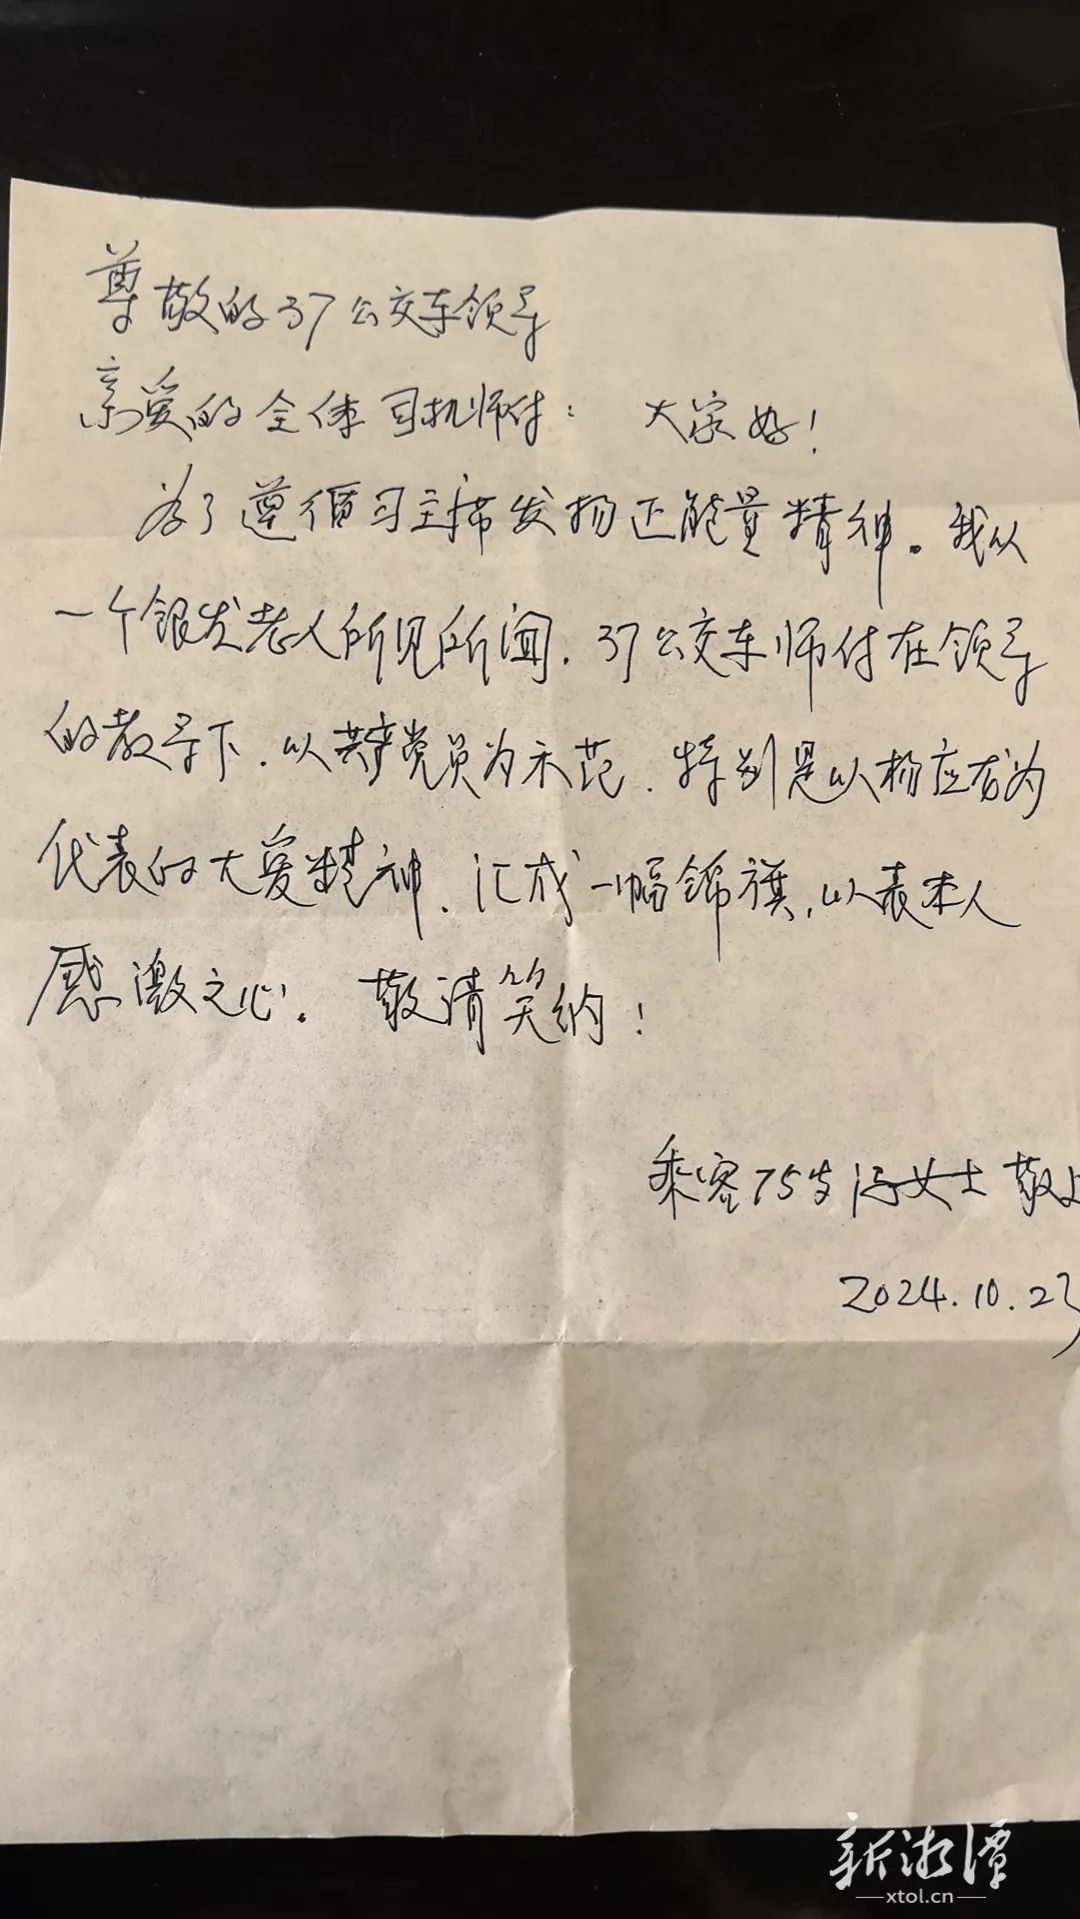 尊敬的37公交车领导
亲爱的全体司机师付：大家好！
为了遵循习主席发扬正能量精神。我从
一个银发老人所见所闻．37公交车师付在领导
的教导下．以共产党员为示范．特别是以杨应龙为
代表的大爱精神．汇成一幅锦旗，以表本人
感激之心！．敬请笑纳！
乘客75岁冯女士敬上
2024.10.23
新湘潭
xtol.cn